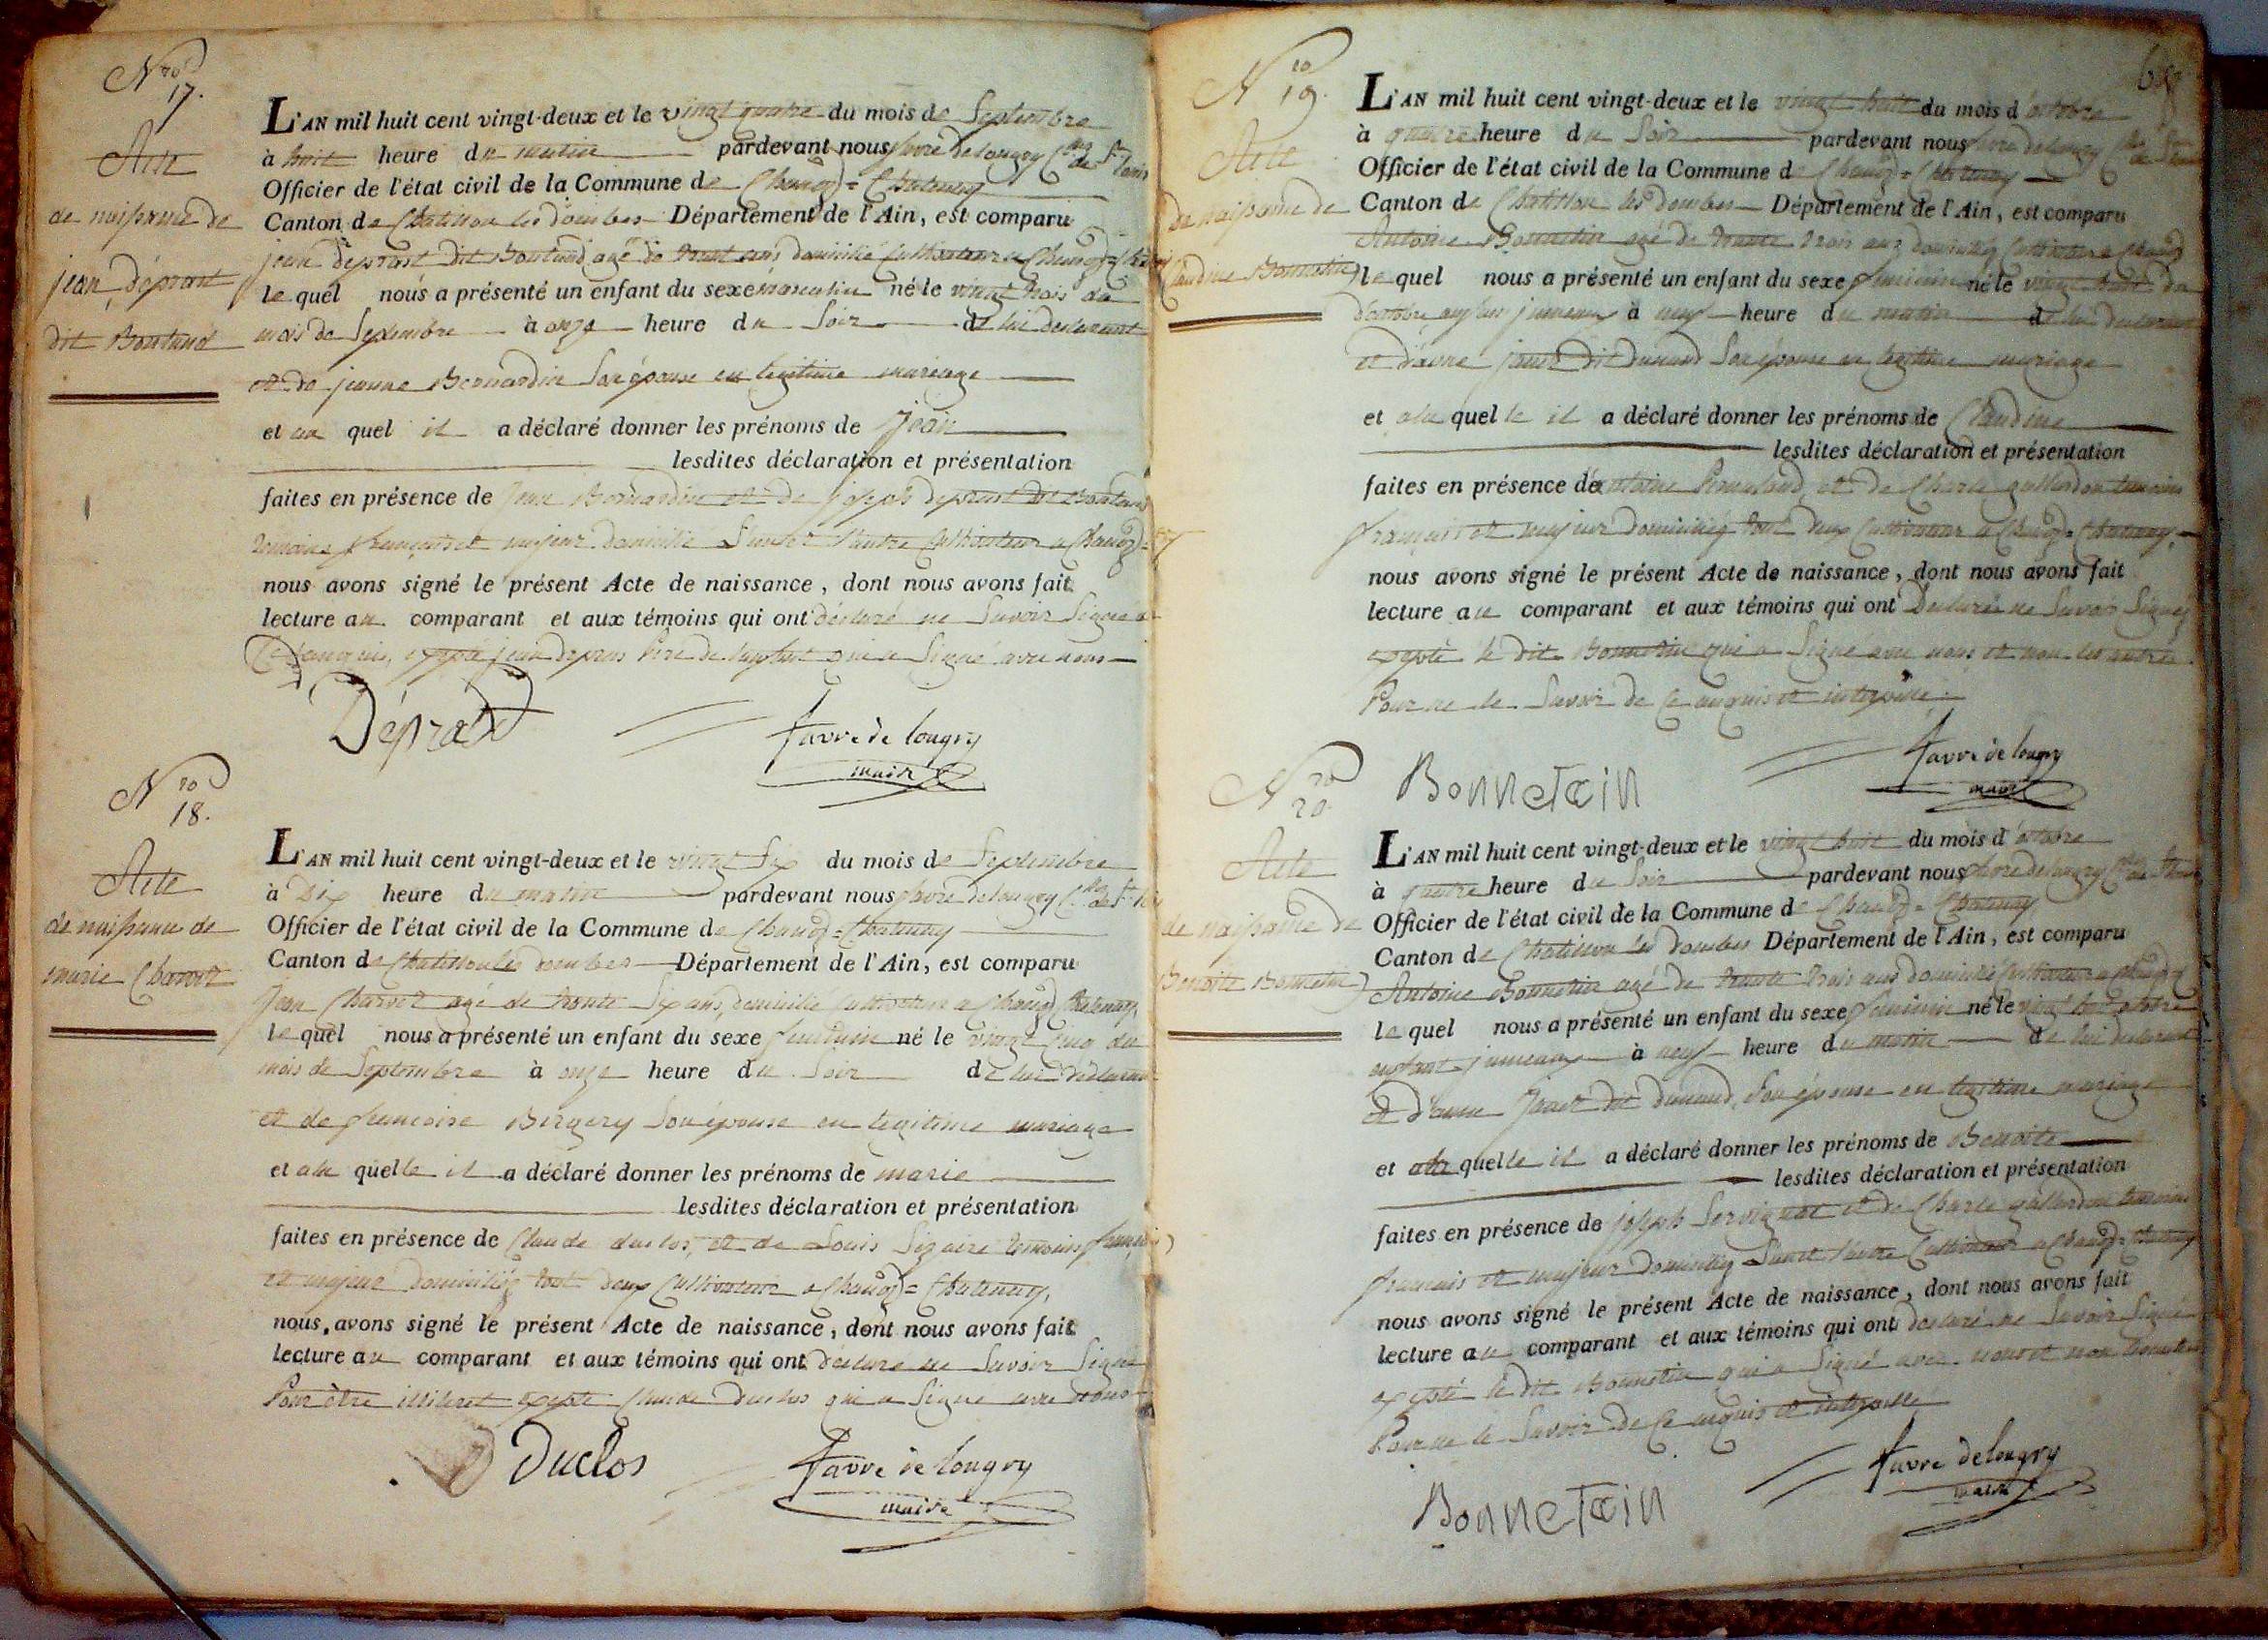 Nro 17.
Acte
de naissance de
jean déprost
dit Boutund
L'AN mil huit cent vingt-deux et le vingt quatre du mois de Septembre
à huit heure du matin pardevant nous favre de longry Cher de St Louis
Officier de l'état civil de la Commune de Chanoz=Chatenay
Canton de Chatillon les dombes Département de l'Ain, est comparu
jean déprost dit agé de ans domicilié Cultivateur a Chanoz=
le quel nous a présenté un enfant du sexe masculin né le vingt trois du
mois de Septembre à onze heure du Soir de lui declarant
et de jeanne Bernardin Son épouse en legitime mariage
et au quel il a déclaré donner les prénoms de jean
lesdites déclaration et présentation
faites en présence de jean Bernardin et de joseph deprost dit
temoins français et majeur domicilié l'un et l'autre Cultivateur a Chanoz=
nous avons signé le présent Acte de naissance, dont nous avons fait
lecture au comparant et aux témoins qui ont déclaré ne Savoir Signer
Ce enquis, excepté jean depros Père de l'enfant qui a Signé avec nous
Déprost
favre de longry
maire
Nro 18.
Acte
de naissance de
marie Charvet
L'AN mil huit cent vingt-deux et le vingt Six du mois de Septembre
à Dix heure du matin pardevant nous favre de longry Cher de St Louis
Officier de l'état civil de la Commune de Chanoz=Chatenay
Canton de Chatillon les dombes Département de l'Ain, est comparu
Jean Charvet agé de trente Six ans, domicilié Cultivateur a Chanoz Chatenay,
le quel nous a présenté un enfant du sexe feminin né le vingt Cinq du
mois de Septembre à onze heure du Soir de lui déclarant
et de francoise Bergery Son épouse en legitime mariage
et a la quelle il a déclaré donner les prénoms de marie
lesdites déclaration et présentation
faites en présence de Claude duclos, et de Louis Sigaire temoins français
et majeur domiciliés tout deux Cultivateur a Chanoz=Chatenay,
nous avons signé le présent Acte de naissance, dont nous avons fait
lecture au comparant et aux témoins qui ont déclaré ne Savoir Signé
Pour être illiteret excepté Claude Duclos qui a Signé avec nous
Duclos
favre de longry
maire
Nro 19.
Acte
de naissance de
Claudine Bonnetin
L'AN mil huit cent vingt-deux et le vingt huit du mois d'octobre
à quatre heure du Soir pardevant nous favre de longry Cher de St Louis
Officier de l'état civil de la Commune de Chanoz=Chatenay
Canton de Chatillon les dombes Département de l'Ain, est comparu
Antoine Bonnetin agé de trente trois ans domicilié Cultivateur a Chanoz
le quel nous a présenté un enfant du sexe feminin né le vingt huit du
d'octobre jumeaux à neuf heure du matin de lui declarant
et d'anne janet Dit Dunand Son épouse en legitime mariage
et a la quelle il a déclaré donner les prénoms de Claudine
lesdites déclaration et présentation
faites en présence de antoine et de Charle gallardon temoins
français et majeur domiciliés tout deux Cultivateur a Chanoz=Chatenay,
nous avons signé le présent Acte de naissance, dont nous avons fait
lecture au comparant et aux témoins qui ont Declarés ne Savoir Signés
excepté le dit Bonnetin qui a Signé avec nous et non les autres
Pour ne le Savoir de Ce enquis et interpellé.
Bonnetain
favre de longry
maire
Nro 20.
Acte
de naissance de
Benoite Bonnetin
L'AN mil huit cent vingt-deux et le vingt huit du mois d'octobre
à quatre heure du Soir pardevant nous favre de longry Cher de St Louis
Officier de l'état civil de la Commune de Chanoz=Chatenay
Canton de Chatillon les dombes Département de l'Ain, est comparu
Antoine Bonnetin agé de trente trois ans domicilié Cultivateur a Chanoz
le quel nous a présenté un enfant du sexe feminin né le vingt huit octobre
enfant jumeaux à neuf heure du matin de lui declarant
et d'anne Janet dit dunand, Son épouse en legitime mariage
et a la quelle il a déclaré donner les prénoms de Benoite
lesdites déclaration et présentation
faites en présence de joseph Servignat et de Charle gallardon temoins
français et majeur domiciliés l'un et l'autre Cultivateur a Chanoz=Chatenay
nous avons signé le présent Acte de naissance, dont nous avons fait
lecture au comparant et aux témoins qui ont declaré ne Savoir Signé
excepté le dit Bonnetin qui a Signé avec nous et non
Pour ne le Savoir de Ce enquis et interpellé
Bonnetain
favre de longry
maire